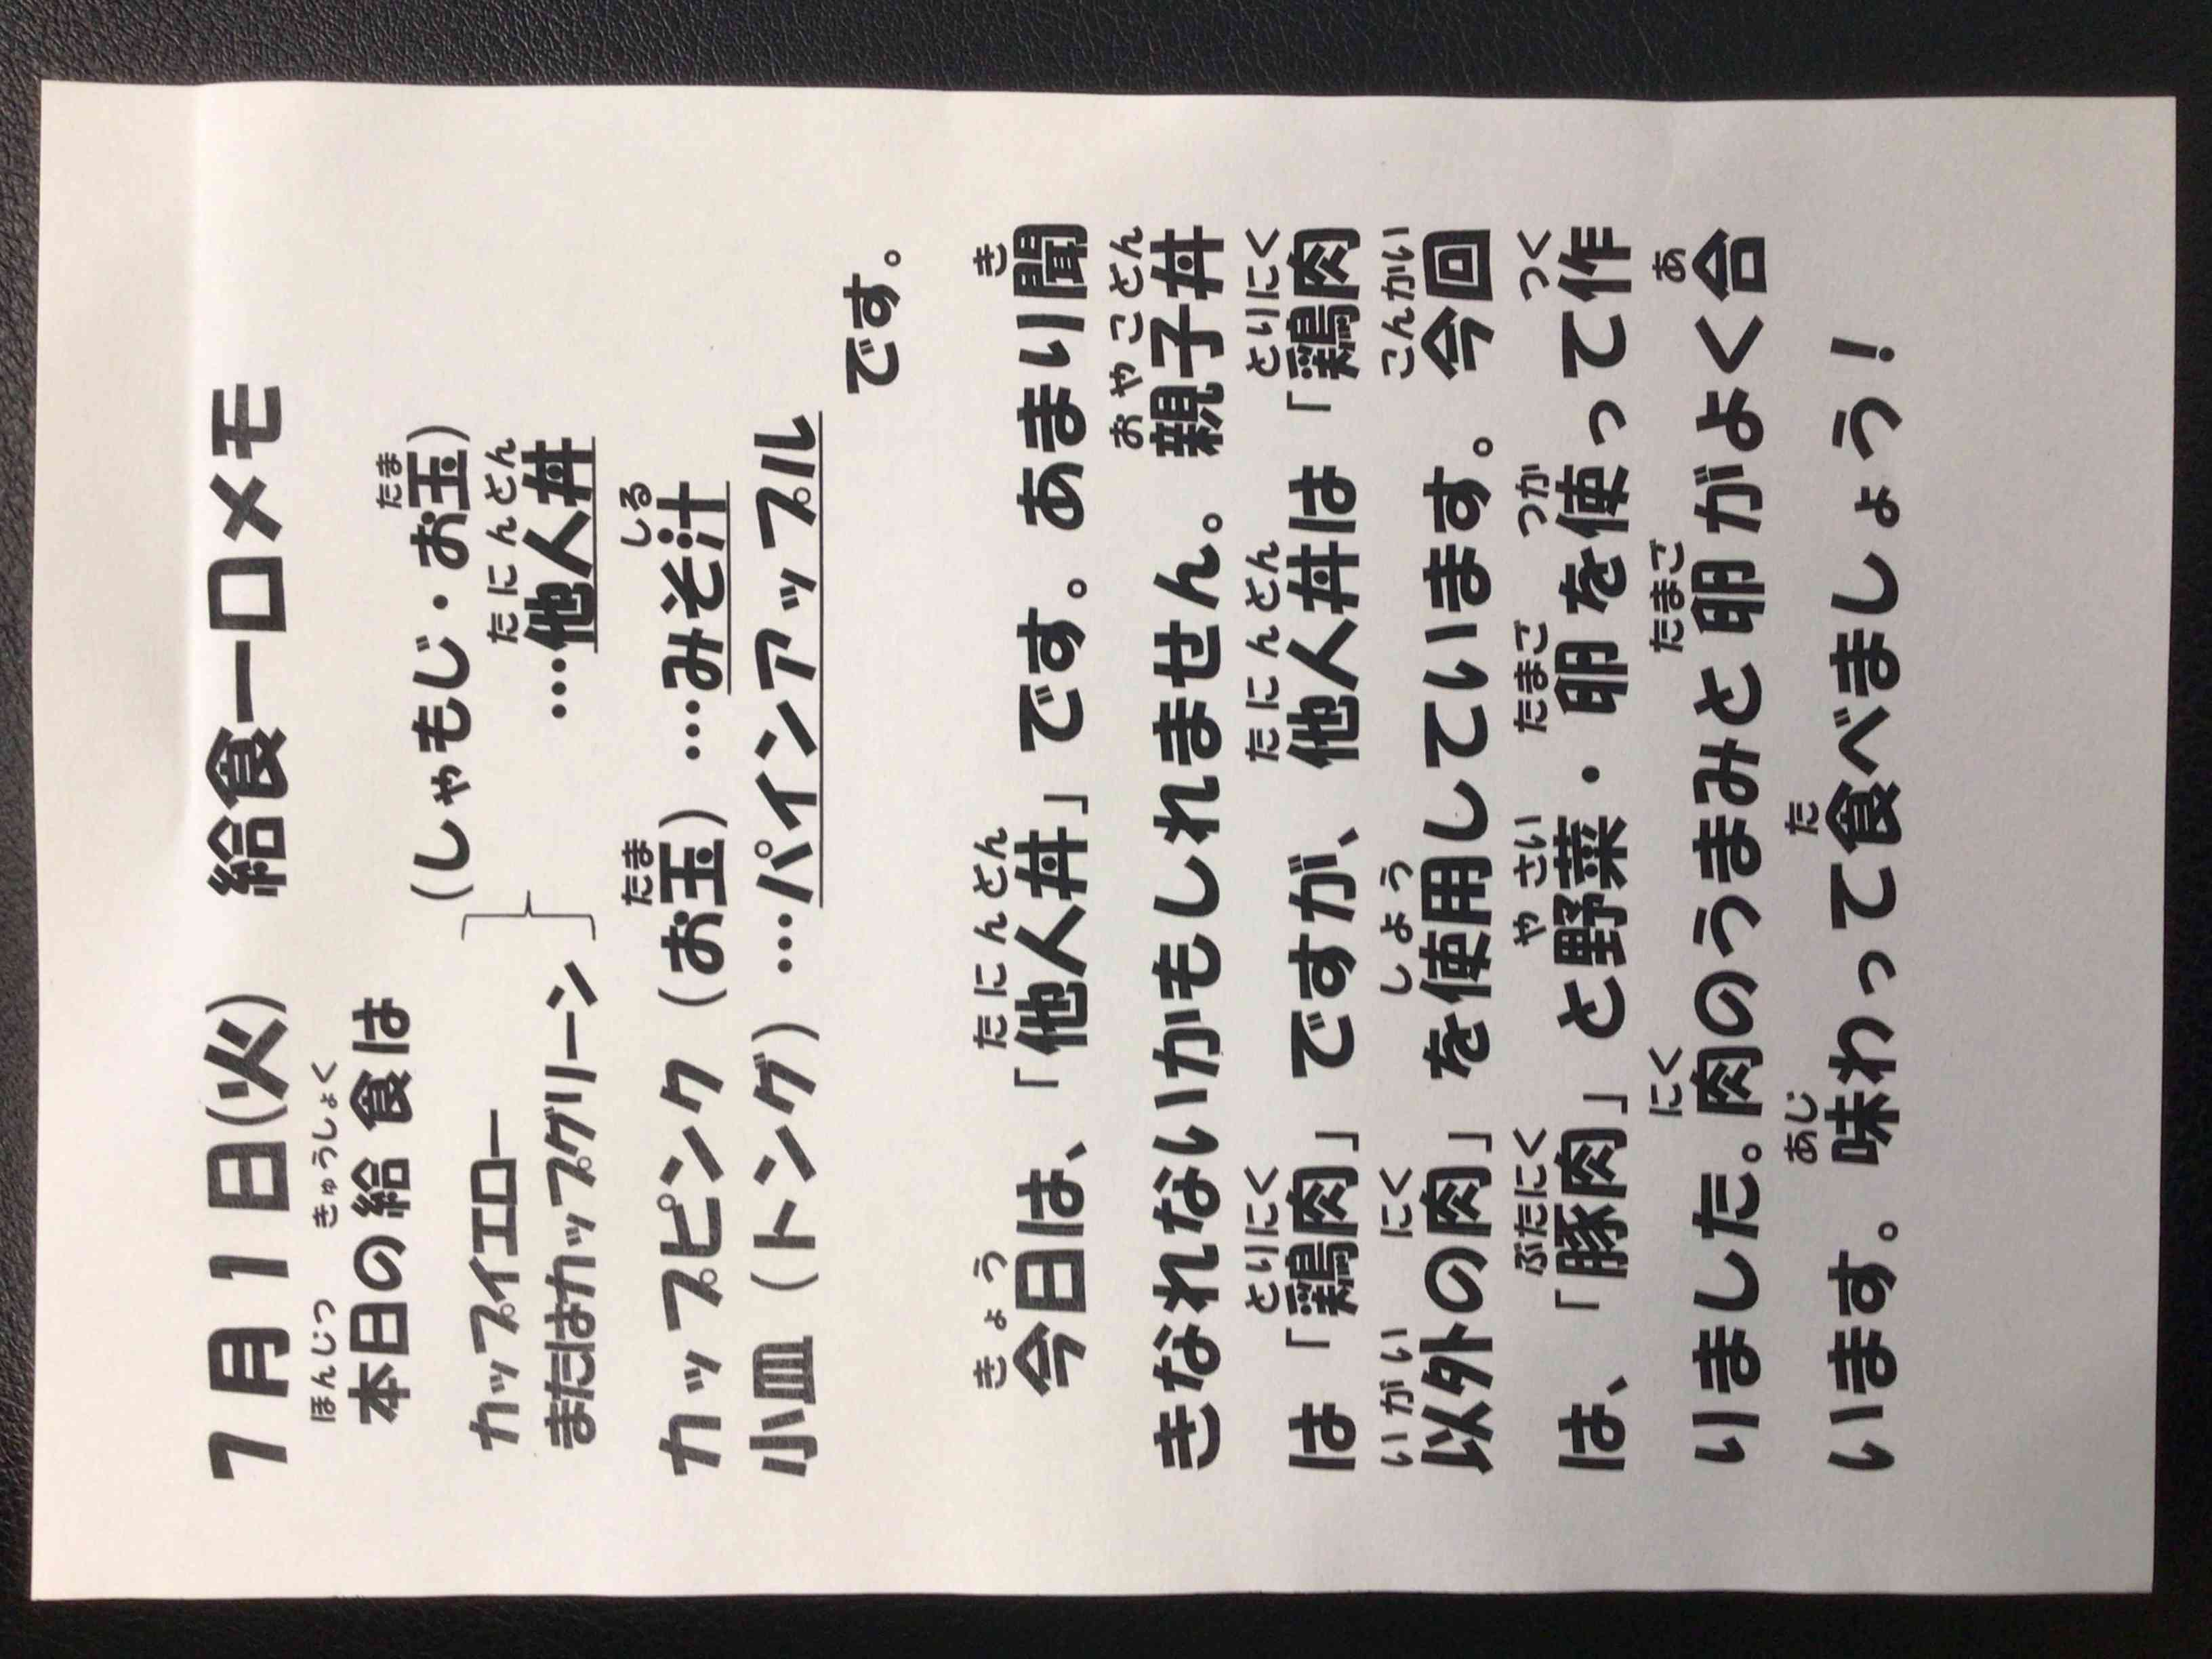 7月1日(火) 給食一口メモ
ほんじつ きゅうしょく
本日の給食は
たま
(しゃもじ・お玉)
カップイエロー
たにんどん
…他人丼
またはカップグリーン
たま しる
カップピンク (お玉) …みそ汁
小皿 (トング) …パインアップル
です。
きょう たにんどん き
今日は、「他人丼」です。あまり聞
おやこどん
きなれないかもしれません。親子丼
とりにく たにんどん とりにく
は「鶏肉」ですが、他人丼は「鶏肉
いがい にく しょう こんかい
以外の肉」を使用しています。今回
ぶたにく やさい たまご つか つく
は、「豚肉」と野菜・卵を使って作
にく たまご あ
りました。肉のうまみと卵がよく合
あじ た
います。味わって食べましょう!